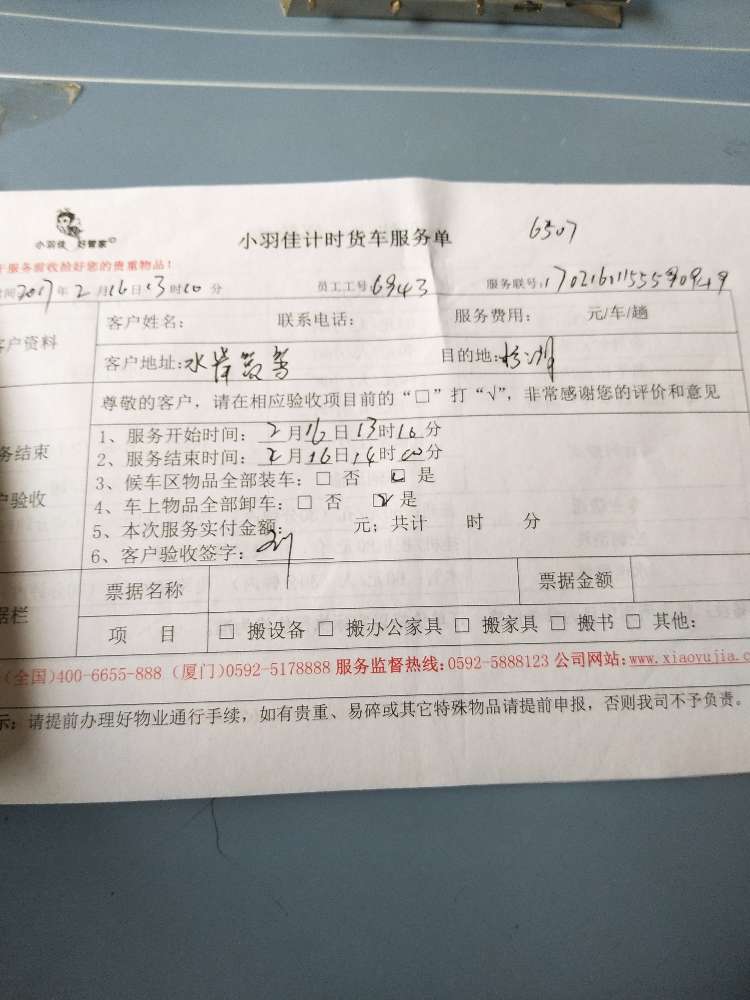 小羽佳 好管家
小羽佳计时货车服务单 6507
服务前收拾好您的贵重物品!
间2017年2月16日13时10分 员工工号:6943 服务联号:
户资料 客户姓名: 联系电话: 服务费用: 元/车/趟
客户地址:水岸 目的地:
尊敬的客户,请在相应验收项目前的“□”打“√”,非常感谢您的评价和意见
务结束
1、服务开始时间:2月16日13时10分
2、服务结束时间:2月16日14时00分
3、候车区物品全部装车:□ 否 ☑ 是
户验收
4、车上物品全部卸车:□ 否 ☑ 是
5、本次服务实付金额: 元;共计 时 分
6、客户验收签字:刘
据栏 票据名称 票据金额
项 目 □ 搬设备 □ 搬办公家具 □ 搬家具 □ 搬书 □ 其他:
(全国)400-6655-888 (厦门)0592-5178888 服务监督热线:0592-5888123 公司网站:www.xiaoyujia.c
示:请提前办理好物业通行手续,如有贵重、易碎或其它特殊物品请提前申报,否则我司不予负责。